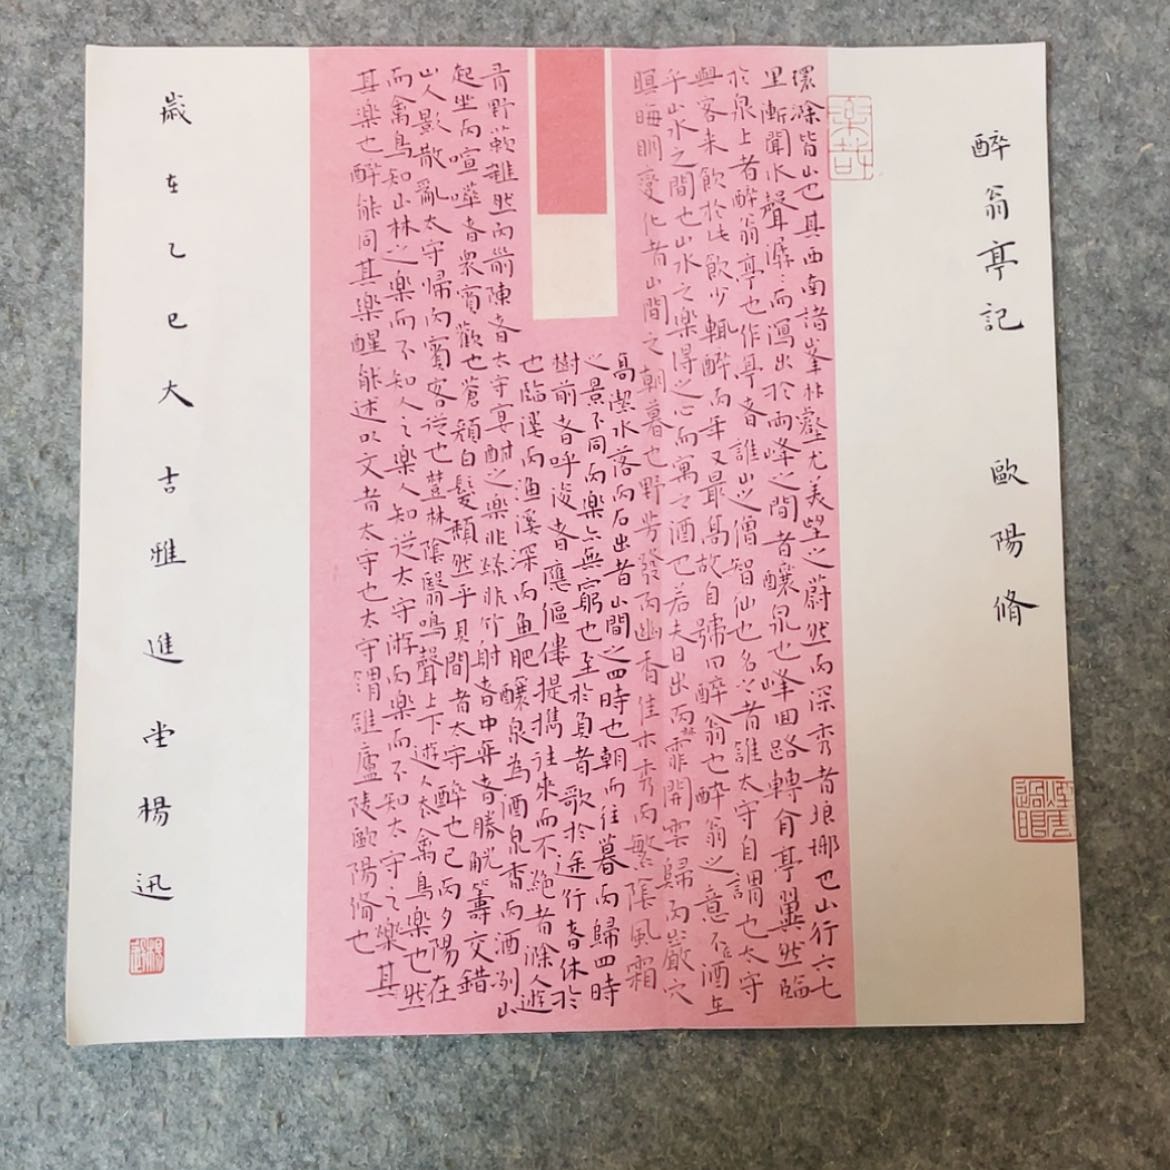 醉翁亭記 歐陽脩
環滁皆山也其西南諸峯林壑尤美望之蔚然而深秀者琅琊也山行六七
里漸聞水聲潺々而瀉出於兩峰之間者釀泉也峰回路轉有亭翼然臨
於泉上者醉翁亭也作亭者誰山之僧智仙也名之者誰太守自謂也太守
與客来飲於此飲少輒醉而年又最高故自號曰醉翁也醉翁之意不在酒在
乎山水之間也山水之樂得之心而寓之酒也若夫日出而霏開雲歸而巖穴
暝晦明變化者山間之朝暮也野芳發而幽香佳木秀而繁陰風霜
高潔水落而石出者山間之四時也朝而往暮而歸四時
之景不同而樂亦無窮也至於負者歌於途行者休於
樹前者呼後者應傴僂提攜往來而不絕者滁人遊
也臨溪而漁溪深而魚肥釀泉為酒泉香而酒洌山
肴野蔌雜然而前陳者太守宴酣之樂非絲非竹射者中弈者勝觥籌交錯
起坐而喧嘩者衆賓歡也蒼顏白髮頹然乎其間者太守醉也已而夕陽在
山人影散亂太守歸而賓客從也樹林陰翳鳴聲上下遊人去禽鳥樂也然
而禽鳥知山林之樂而不知人之樂人知從太守游而樂而不知太守之樂其
其樂也醉能同其樂醒能述以文者太守也太守謂誰廬陵歐陽脩也
歲在乙巳大吉雅進堂楊迅